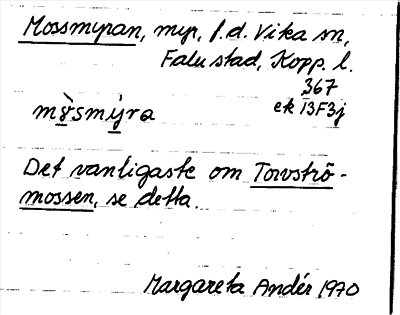 Mossmyran, myr, f.d. Vika sn,
Falu stad, Kopp. l.
367
ek 13F3j
mo̱̊̀smy̱̍ra
Det vanligaste om Torvströ-
mossen, se detta.
Margareta Andér 1970